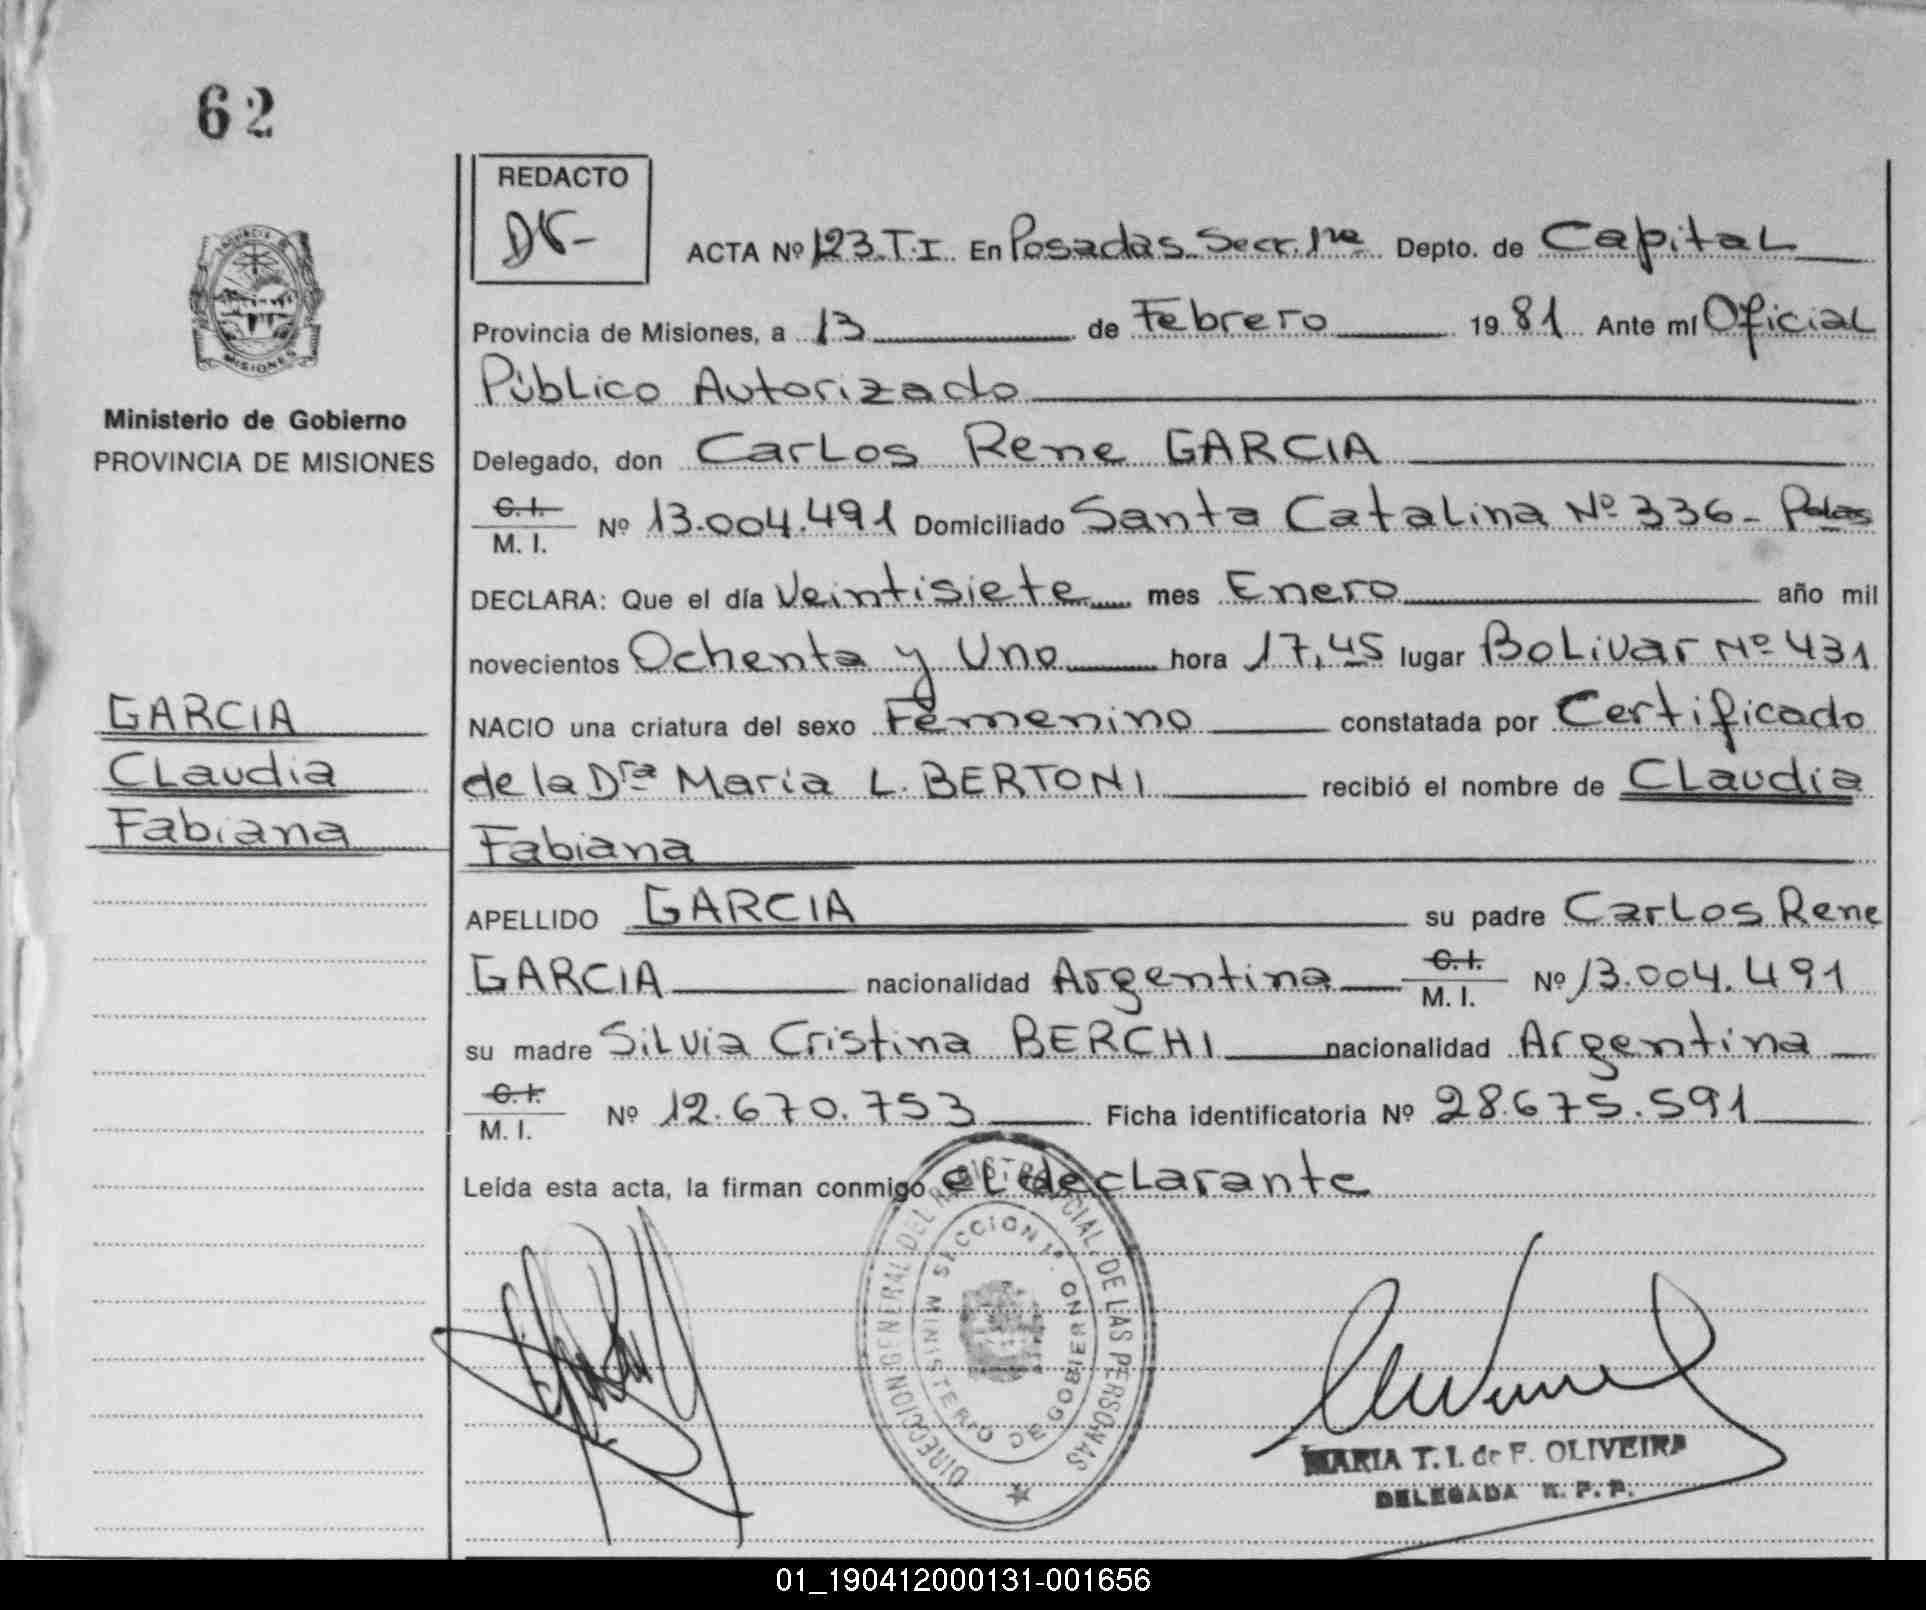 62
REDACTO
ACTA Nº 123.T.I. En Posadas Secc. 1ra Depto. de Capital
Provincia de Misiones, a 13 de Febrero 1981 Ante mí Oficial
Público Autorizado
Ministerio de Gobierno
PROVINCIA DE MISIONES
Delegado, don Carlos Rene GARCIA
C.I.
M. I. Nº 13.004.491 Domiciliado Santa Catalina Nº 336 - Pdas
DECLARA: Que el día Veintisiete mes Enero año mil
novecientos Ochenta y Uno hora 17,45 lugar Bolivar Nº 431
GARCIA
Claudia
Fabiana
NACIO una criatura del sexo Femenino constatada por Certificado
de la Dra Maria L. BERTONI recibió el nombre de Claudia
Fabiana
APELLIDO GARCIA su padre Carlos Rene
GARCIA nacionalidad Argentina C.I. M. I. Nº 13.004.491
su madre Silvia Cristina BERCHI nacionalidad Argentina
C.I.
M. I. Nº 12.670.753 Ficha identificatoria Nº 28.675.591
Leída esta acta, la firman conmigo el declarante
DIRECCION GENERAL DEL REGISTRO PROVINCIAL DE LAS PERSONAS
SECCION 1ª.
MINISTERIO DE GOBIERNO
MARIA T. I. de F. OLIVEIRA
DELEGADA R. P. P.
01_190412000131-001656